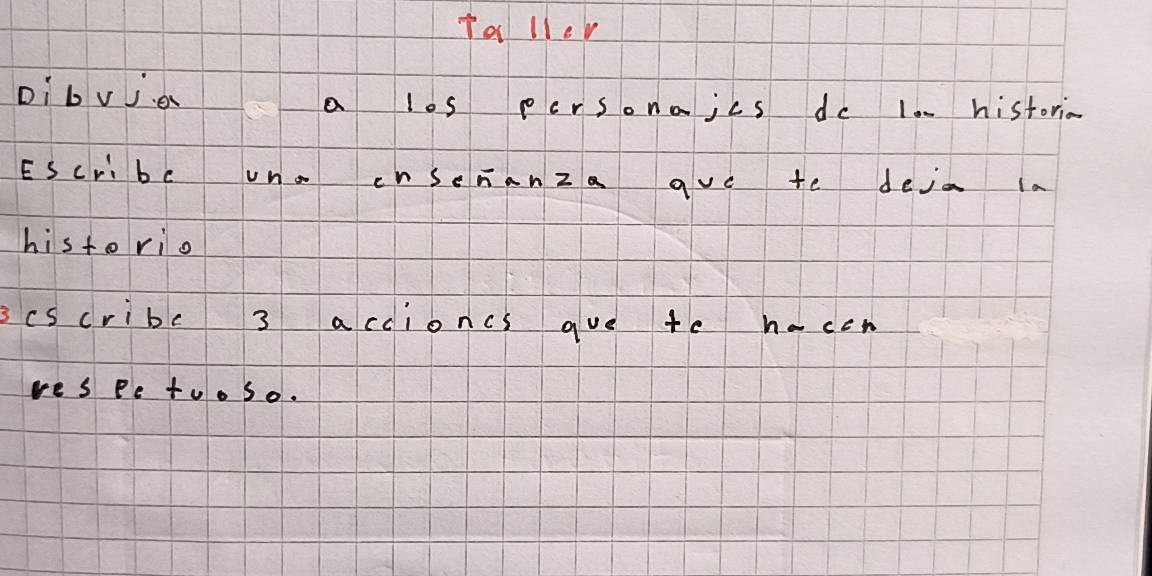 Taller
Dibuja a los personajes de la historia
Escribe una enseñanza que te deja la
historio
3 escribe 3 acciones que te hacen
respetuoso.